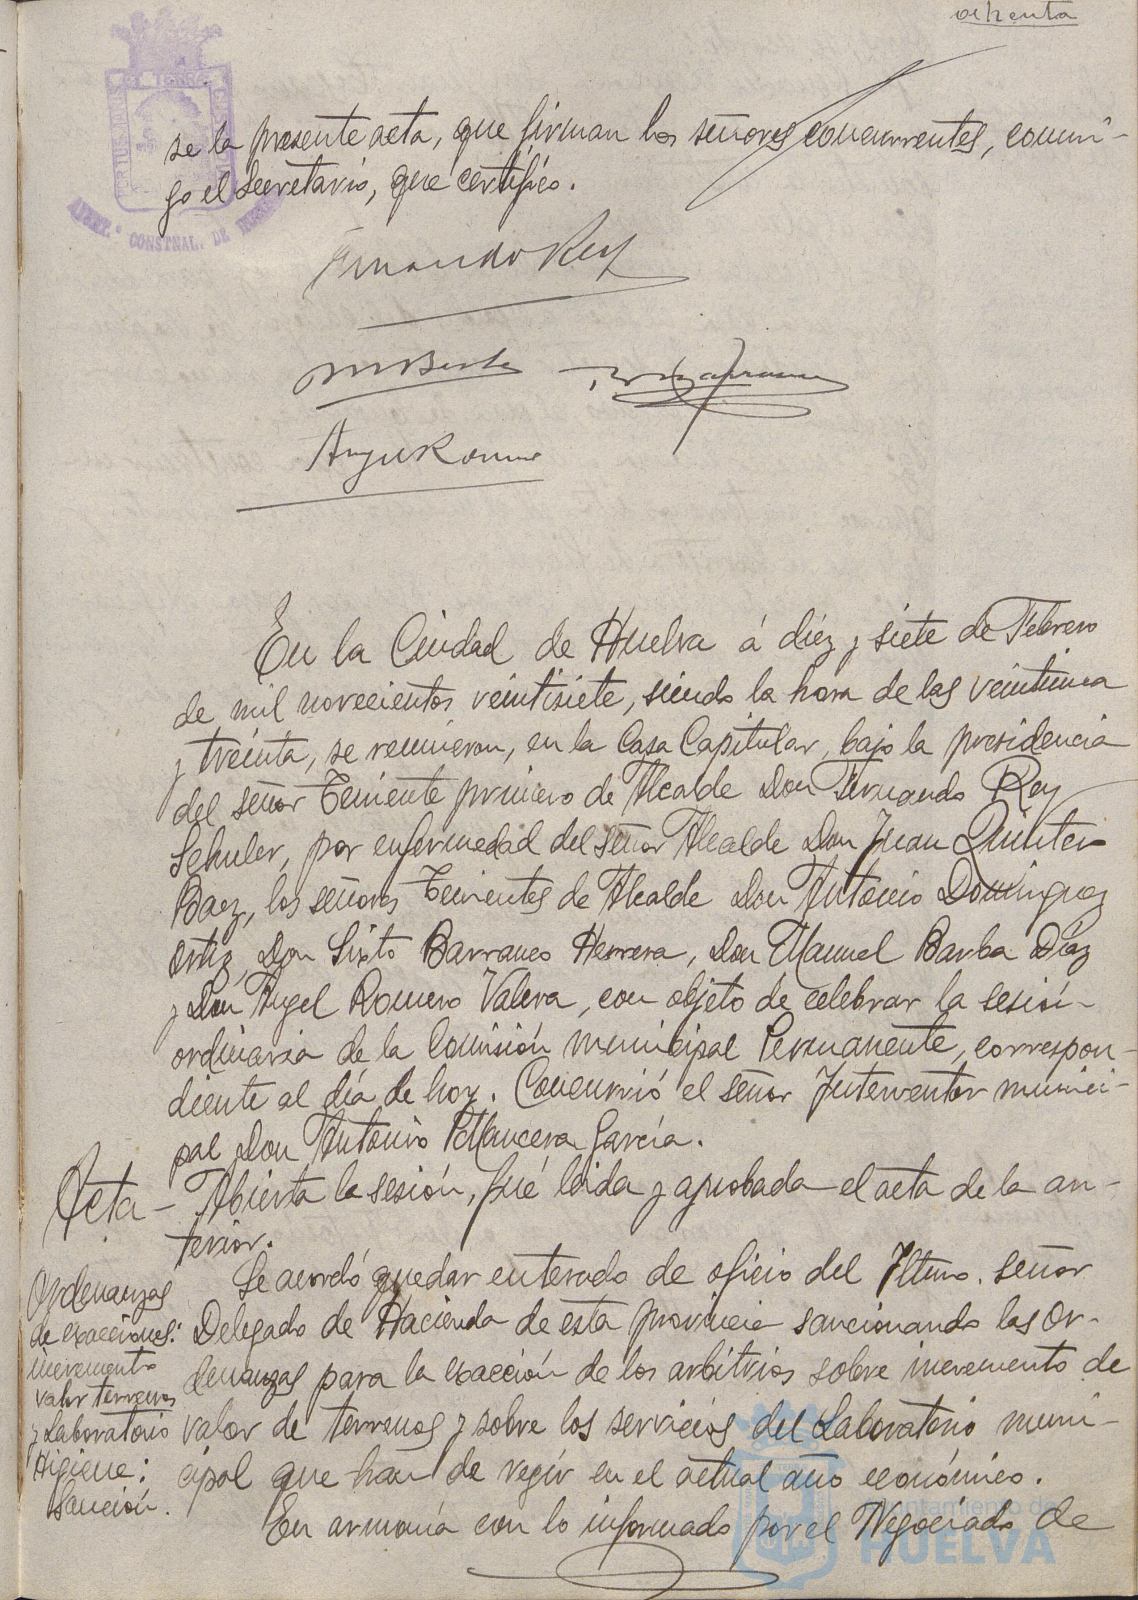 ochenta
se la presente acta, que firman los señores concurrentes, conmi-
go el Secretario, que certifico.
PORTUS MARIS ET TERRAE CUSTODIA
AYUNT.º CONSTNAL. DE HUELVA
Fernando Rey
M Barba
Angel Romero
En la Ciudad de Huelva á diez y siete de Febrero
de mil novecientos veintisiete, siendo la hora de las veintiuna
y treinta, se reunieron, en la Casa Capitular, bajo la presidencia
del señor Teniente primero de Alcalde Don Fernando Rey
Schuler, por enfermedad del señor Alcalde Don Juan Quintero
Baez, los señores Tenientes de Alcalde Don Antonio Dominguez
Ortiz, Don Sixto Barranco Herrera, Don Manuel Barba Díaz
y Don Angel Romero Valera, con objeto de celebrar la sesión
ordinaria de la Comisión municipal Permanente, correspon-
diente al día de hoy. Concurrió el señor Interventor munici-
pal Don Antonio Mancera García.
Acta - Abierta la sesión, fué leida y aprobada el acta de la an-
terior.
Ordenanzas
de exacciones:
incremento
valor terrenos
y Laboratorio
Higiene:
Sanción.
Se acordó quedar enterado de oficio del Iltmo. señor
Delegado de Hacienda de esta provincia sancionando las Or-
denanzas para la exacción de los arbitrios sobre incremento de
valor de terrenos y sobre los servicios del Laboratorio muni-
cipal que han de regir en el actual año económico.
En armonía con lo informado por el Negociado de
Ayuntamiento de
HUELVA